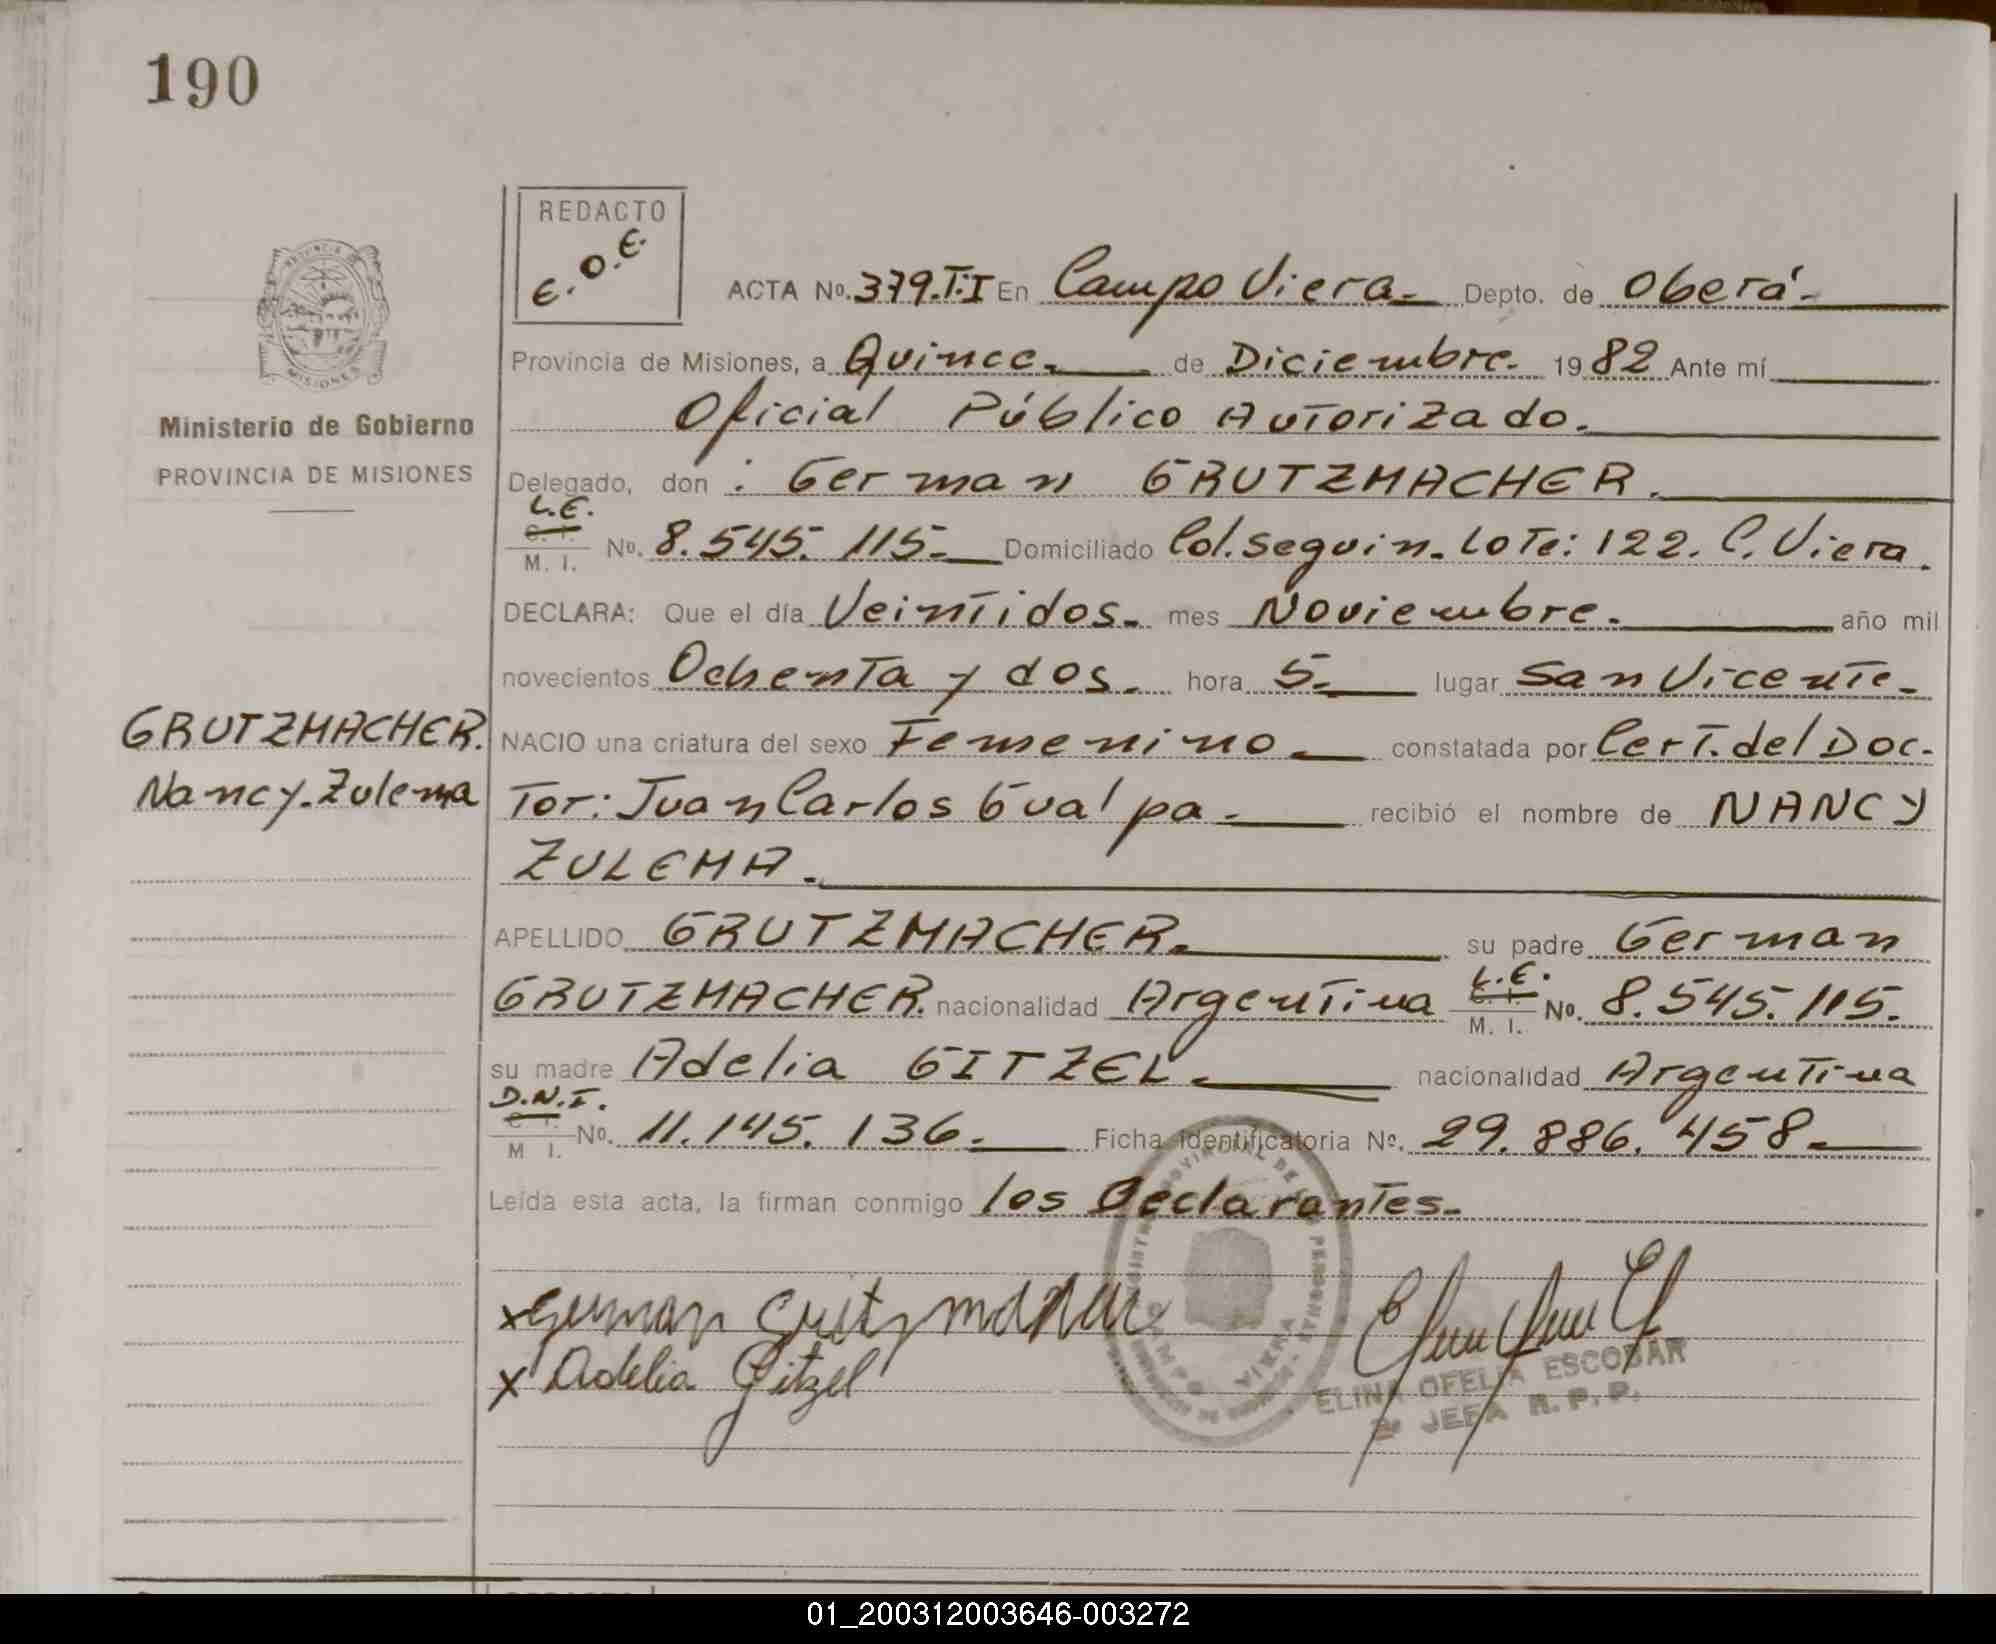 190
REDACTO
E.O.E.
PROVINCIA DE
MISIONES
Ministerio de Gobierno
PROVINCIA DE MISIONES
GRUTZMACHER.
Nancy.Zulema
ACTA No. 379.T:I En Campo Viera.- Depto. de Oberá.-
Provincia de Misiones, a Quince. de Diciembre. 1982 Ante mí
Oficial Público Autorizado.
Delegado, don : German GRUTZMACHER.
L.E.
C. I.
M. I. No. 8.545.115.- Domiciliado Col.Seguin.Lote:122. C.Viera.
DECLARA: Que el día Veintidos. mes Noviembre. año mil
novecientos Ochenta y dos. hora 5.- lugar San Vicente.-
NACIO una criatura del sexo Femenino.- constatada por Cert.del Doc-
tor: Juan Carlos Gualpa.- recibió el nombre de NANCY
ZULEMA.
APELLIDO GRUTZMACHER. su padre German
L.E.
C. I.
GRUTZMACHER. nacionalidad Argentina M. I. No. 8.545.115.
su madre Adelia GITZEL. nacionalidad Argentina
D.N.I.
C. I.
M I. No. 11.145.136. Ficha Identificatoria No. 29.886.458.-
Leída esta acta, la firman conmigo los Declarantes.-
x German Grutzmacher
x Adelia Gitzel
CAMPO VIERA
ELINA OFELIA ESCOBAR
JEFA R.P.P.
01_200312003646-003272